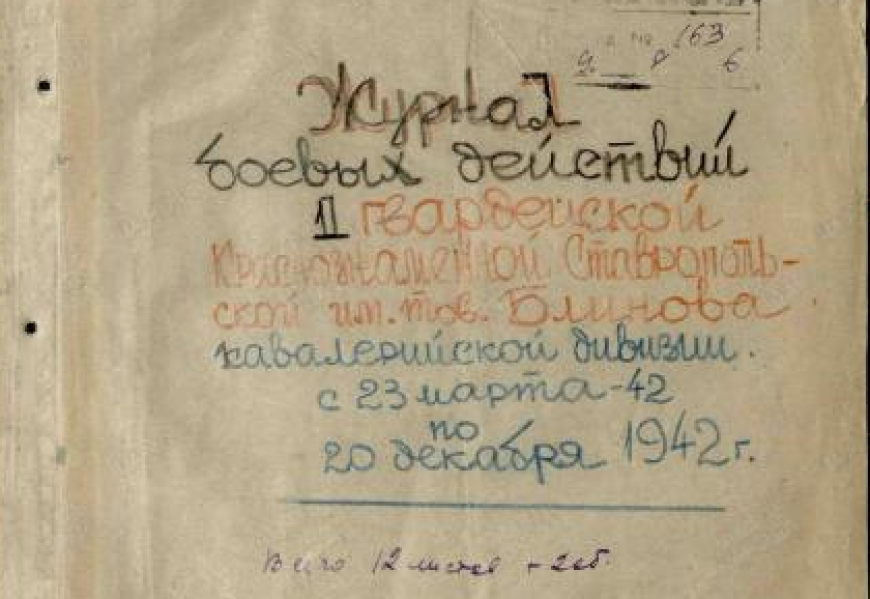 163
6
Журнал
боевых действий
II гвардейской
Краснознаменной Ставрополь-
ской им. тов. Блинова
кавалерийской дивизии.
с 23 марта-42
по
20 декабря 1942 г.
Всего 12 листов + 2 об.